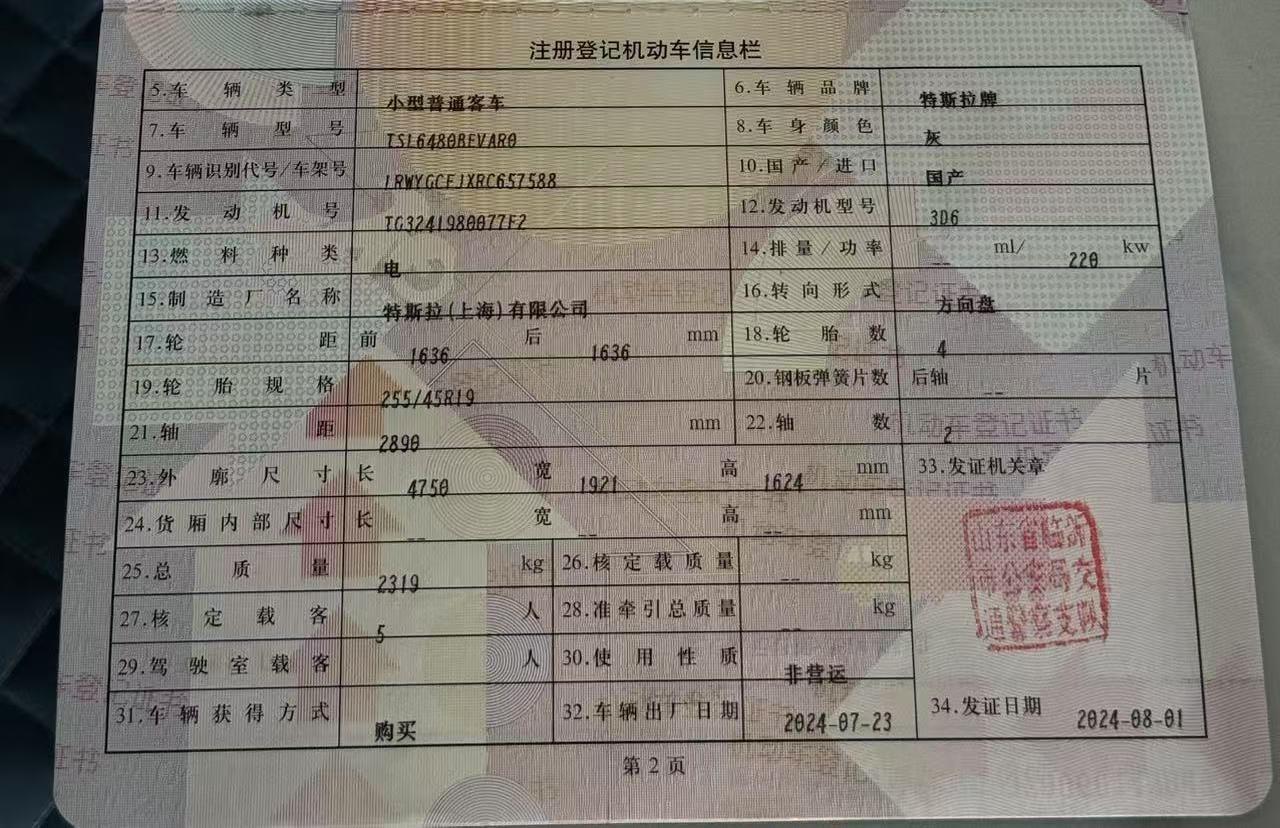 注册登记机动车信息栏
5.车辆类型 小型普通客车 6.车辆品牌 特斯拉牌
7.车辆型号 TSL6480BEVAR0 8.车身颜色 灰
9.车辆识别代号/车架号 LRWYGCFJXRC657588 10.国产/进口 国产
11.发动机号 TG3241980077F2 12.发动机型号 3D6
13.燃料种类 电 14.排量/功率 -- ml/ 220 kw
15.制造厂名称 特斯拉(上海)有限公司 16.转向形式 方向盘
17.轮距 前 1636 后 1636 mm 18.轮胎数 4
19.轮胎规格 255/45R19 20.钢板弹簧片数 后轴 -- 片
21.轴距 2890 mm 22.轴数 2
23.外廓尺寸 长 4750 宽 1921 高 1624 mm 33.发证机关章
24.货厢内部尺寸 长 -- 宽 -- 高 -- mm
山东省临沂
市公安局交
通警察支队
25.总质量 2319 kg 26.核定载质量 -- kg
27.核定载客 5 人 28.准牵引总质量 -- kg
29.驾驶室载客 人 30.使用性质 非营运
31.车辆获得方式 购买 32.车辆出厂日期 2024-07-23 34.发证日期 2024-08-01
第2页